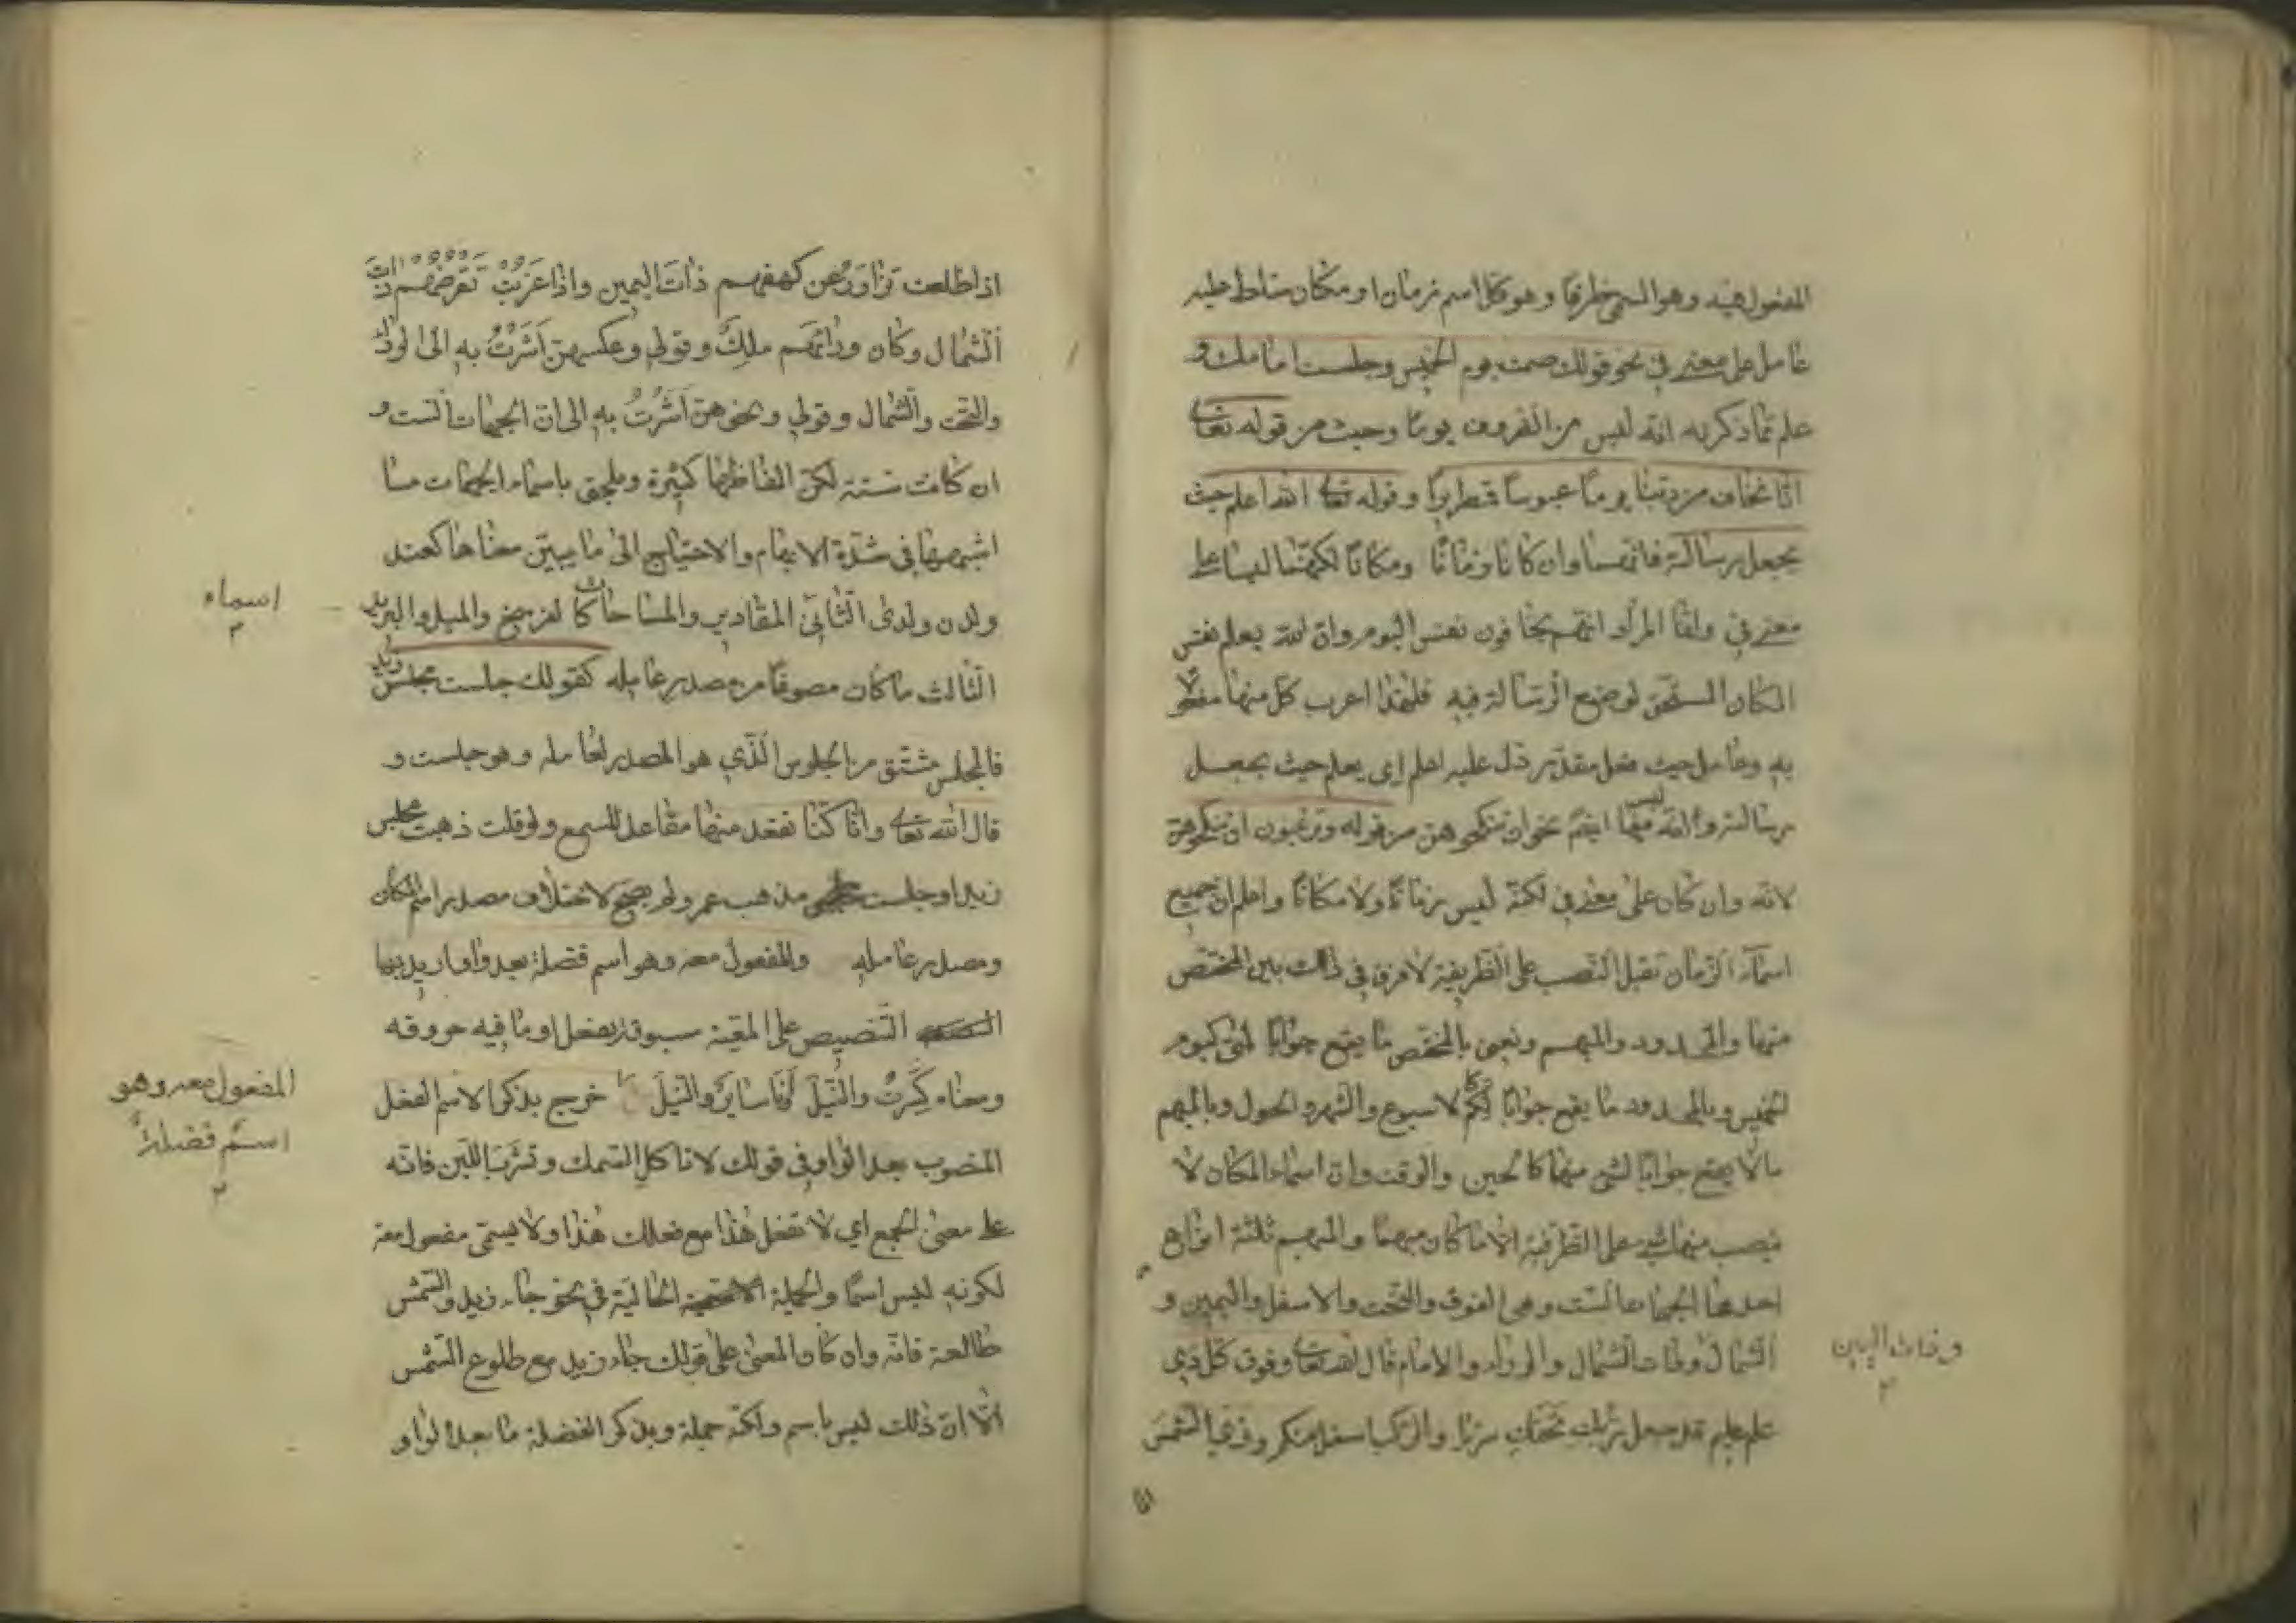 المفعول فيه وهو المسمى ظرفا وهو كل اسم زمان او مكان سلط عليه
عامل على معنى في نحو قولك صمت يوم الخميس وجلست امامك و
علم مما ذكرته انه ليس من الظروف يوما وحيث من قوله تعالى
انا نخاف من ربنا يوما عبوسا قمطريرا وقوله تعالى الله اعلم حيث
يجعل رسالته فانهما وان كانا زمانا ومكانا لكنهما ليسا على
معنى في وانما المراد انهم يخافون نفس اليوم وان الله يعلم نفس
المكان المستحق لوضع الرسالة فيه فلهذا اعرب كل منهما مفعولا
به وعامل حيث فعل مقدر دل عليه اعلم اي يعلم حيث يجعل
رسالته وانه ليس منهما ايضا نحو ان تنكحوهن من قوله وترغبون ان تنكحوهن
لانه وان كان على معنى في لكنه ليس زمانا ولا مكانا واعلم ان جميع
اسماء الزمان تقبل النصب على الظرفية لا فرق في ذلك بين المختص
منها والمحدود والمبهم ونعني بالمختص ما يقع جوابا لمتى كيوم
الخميس وبالمحدود ما يقع جوابا لكم كالاسبوع والشهر والحول وبالمبهم
مالا يقع جوابا لشئ منهما كالحين والوقت وان اسماء المكان لا
ينصب منها شئ على الظرفية الا ما كان مبهما والمبهم ثلثة انواع
احدها الجهات الست وهى الفوق والتحت والاسفل واليمين و
الشمال وذات الشمال والوراء والامام قال الله تعالى وفوق كل ذي
وذات اليمين
علم عليم قد جعل ربك تحتك سريا والركب اسفل منكم وترى الشمس
اذا طلعت تزاور عن كهفهم ذات اليمين واذا غربت تقرضهم ذات
الشمال وكان وراءهم ملك وقولي وعكسهن اشرت به الى الوراء
والتحت والشمال وقولي ونحوهن اشرت به الى ان الجهات الست و
ان كانت ستة لكن الفاظها كثيرة ويلحق باسماء الجهات ما
اشبهها في شدة الابهام والاحتياج الى ما يبين معناها كعند
ولدن ولدى الثاني المقادير والمساحات كالفرسخ والميل والبريد
اسماء
الثالث ما كان مصوغا من مصدر عامله كقولك جلست مجلس زيد
فالمجلس مشتق من الجلوس الذي هو المصدر لعامله وهو جلست و
قال الله تعالى وانا كنا نقعد منها مقاعد للسمع ولو قلت ذهبت مجلس
زيد او جلست مذهب عمر ولم يصح لاختلاف مصدر اسم المكان
ومصدر عامله والمفعول معه وهو اسم فضلة بعد واو اريد بها
التنصيص على المعية مسبوقة بفعل او ما فيه حروفه
ومعناه كسرت والنيل وانا سائر والنيل خرج بذكر الاسم الفعل
المفعول معه وهو
اسم فضلة
المنصوب بعد الواو في قولك لا تاكل السمك وتشرب اللبن فانه
على معنى الجمع اي لا تفعل هذا مع فعلك هذا ولا يسمى مفعولا معه
لكونه ليس اسما والجملة الحالية في نحو جاء زيد والشمس
طالعة فانه وان كان المعنى على قولك جاء زيد مع طلوع الشمس
الا ان ذلك ليس باسم ولكنه جملة وبذكر الفضلة ما بعد الواو